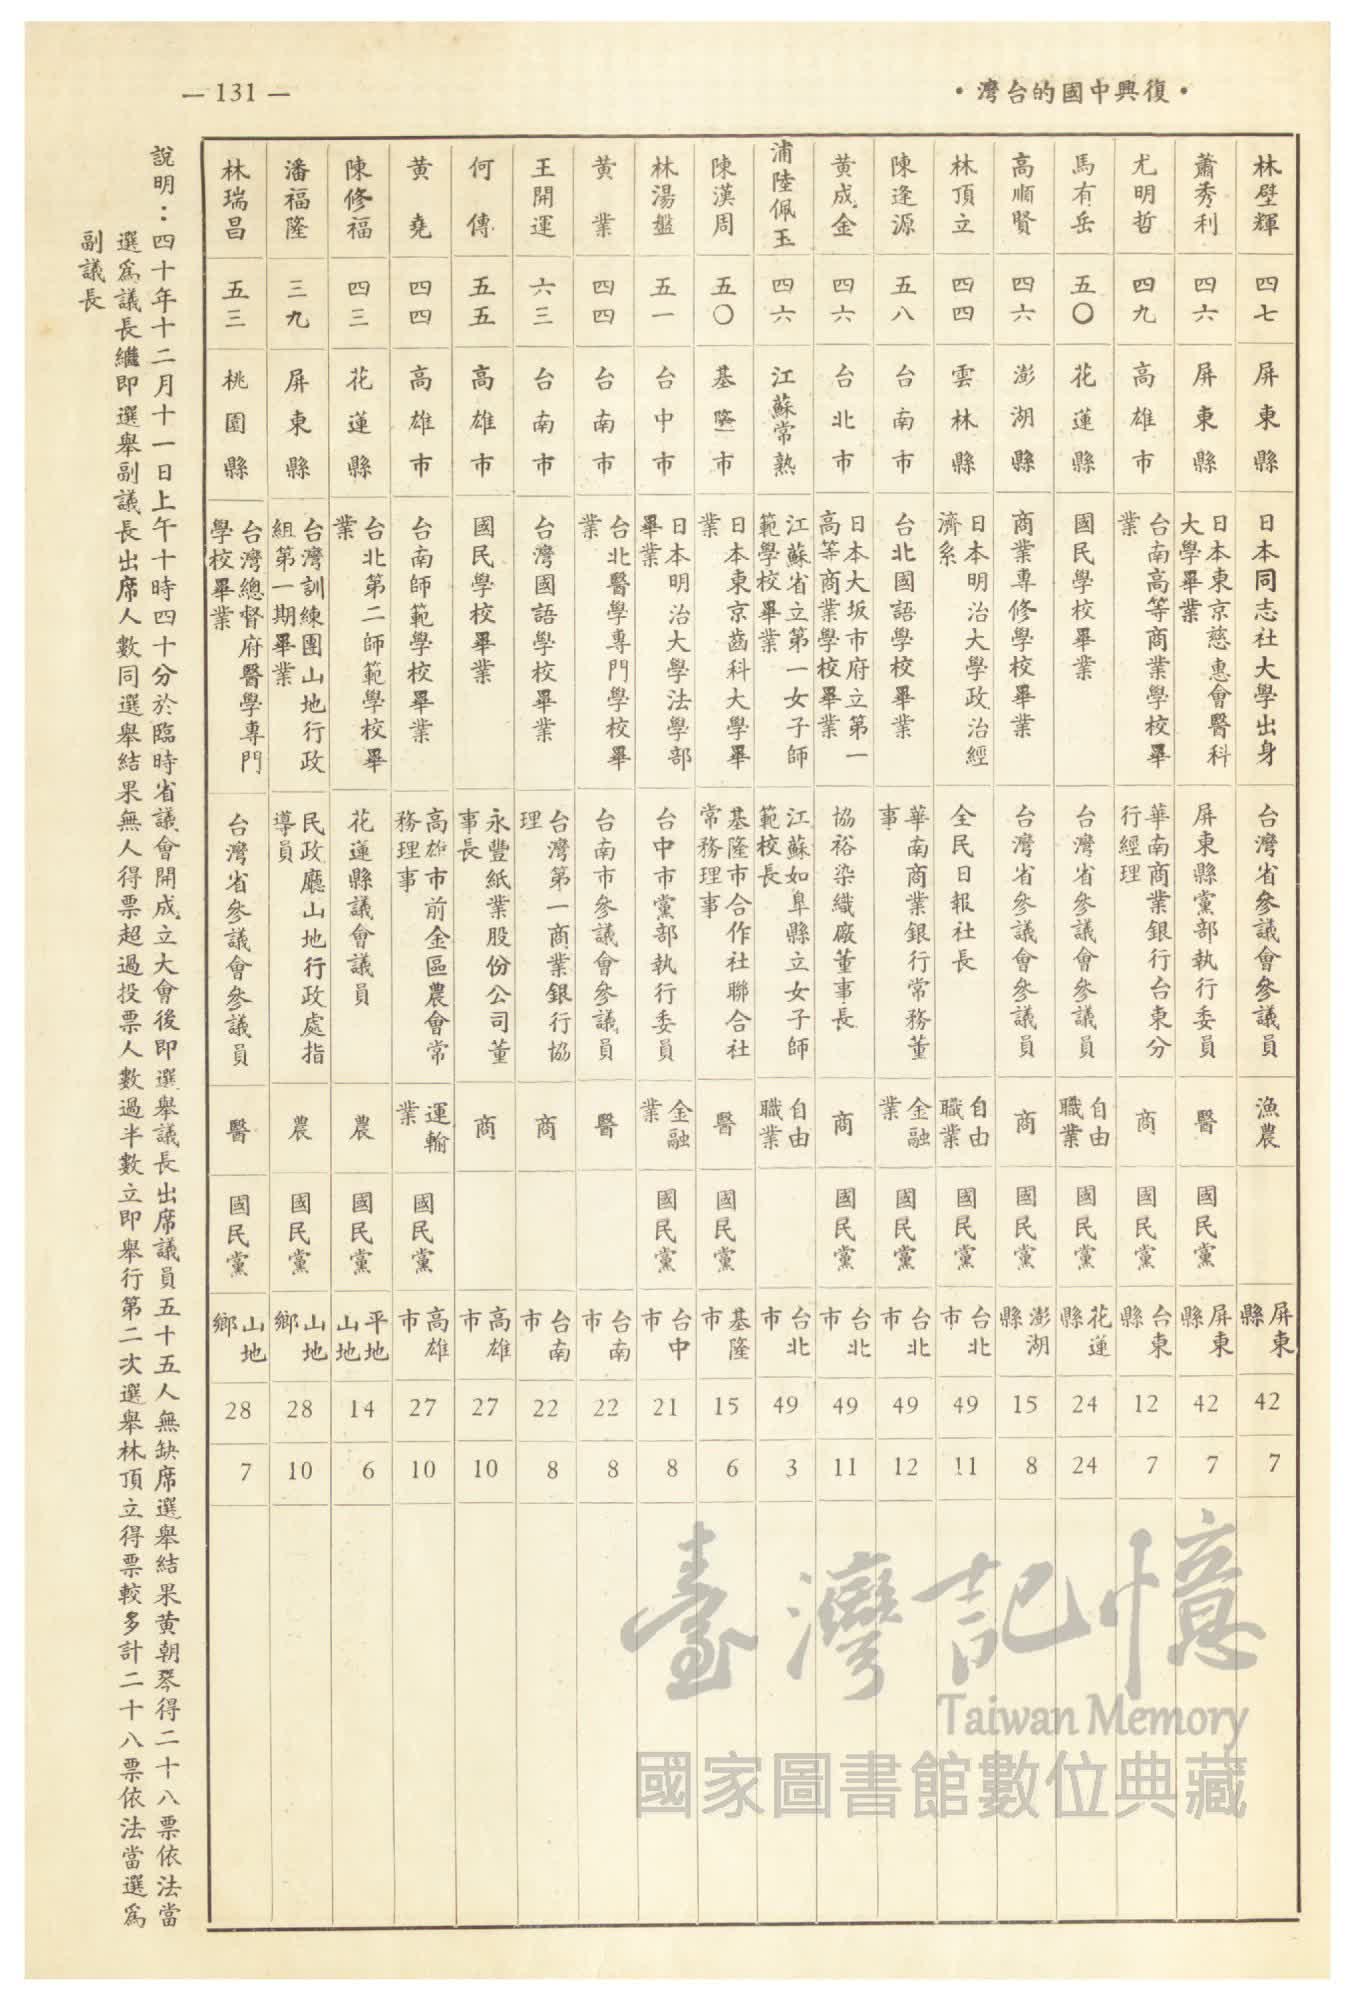 — 131 —
•復興中國的台灣•
林壁輝
四七
屏東縣
日本同志社大學出身
台灣省參議會參議員
漁農
屏東
縣
42
7
蕭秀利
四六
屏東縣
日本東京慈惠會醫科
大學畢業
屏東縣黨部執行委員
醫
國民黨
屏東
縣
42
7
尤明哲
四九
高雄市
台南高等商業學校畢
業
華南商業銀行台東分
行經理
商
國民黨
台東
縣
12
7
馬有岳
五〇
花蓮縣
國民學校畢業
台灣省參議會參議員
自由
職業
國民黨
花蓮
縣
24
24
高順賢
四六
澎湖縣
商業專修學校畢業
台灣省參議會參議員
商
國民黨
澎湖
縣
15
8
林頂立
四四
雲林縣
日本明治大學政治經
濟系
全民日報社長
自由
職業
國民黨
台北
市
49
11
陳逢源
五八
台南市
台北國語學校畢業
華南商業銀行常務董
事
金融
業
國民黨
台北
市
49
12
黃成金
四六
台北市
日本大坂市府立第一
高等商業學校畢業
協裕染織廠董事長
商
國民黨
台北
市
49
11
浦陸佩玉
四六
江蘇常熟
江蘇省立第一女子師
範學校畢業
江蘇如阜縣立女子師
範校長
自由
職業
台北
市
49
3
陳漢周
五〇
基隆市
日本東京齒科大學畢
業
基隆市合作社聯合社
常務理事
醫
國民黨
基隆
市
15
6
林湯盤
五一
台中市
日本明治大學法學部
畢業
台中市黨部執行委員
金融
業
國民黨
台中
市
21
8
黃業
四四
台南市
台北醫學專門學校畢
業
台南市參議會參議員
醫
台南
市
22
8
王開運
六三
台南市
台灣國語學校畢業
台灣第一商業銀行協
理
商
台南
市
22
8
何傳
五五
高雄市
國民學校畢業
永豐紙業股份公司董
事長
商
高雄
市
27
10
黃堯
四四
高雄市
台南師範學校畢業
高雄市前金區農會常
務理事
運輸
業
國民黨
高雄
市
27
10
陳修福
四三
花蓮縣
台北第二師範學校畢
業
花蓮縣議會議員
農
國民黨
平地
山地
14
6
潘福隆
三九
屏東縣
台灣訓練團山地行政
組第一期畢業
民政廳山地行政處指
導員
農
國民黨
山地
鄉
28
10
林瑞昌
五三
桃園縣
台灣總督府醫學專門
學校畢業
台灣省參議會參議員
醫
國民黨
山地
鄉
28
7
說明：四十年十二月十一日上午十時四十分於臨時省議會開成立大會後即選舉議長出席議員五十五人無缺席選舉結果黃朝琴得二十八票依法當
選為議長繼即選舉副議長出席人數同選舉結果無人得票超過投票人數過半數立即舉行第二次選舉林頂立得票較多計二十八票依法當選為
副議長
臺灣記憶
Taiwan Memory
國家圖書館數位典藏